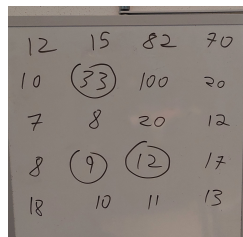 12 15 82 70
10 33 100 20
7 8 20 12
8 9 12 17
18 10 11 13